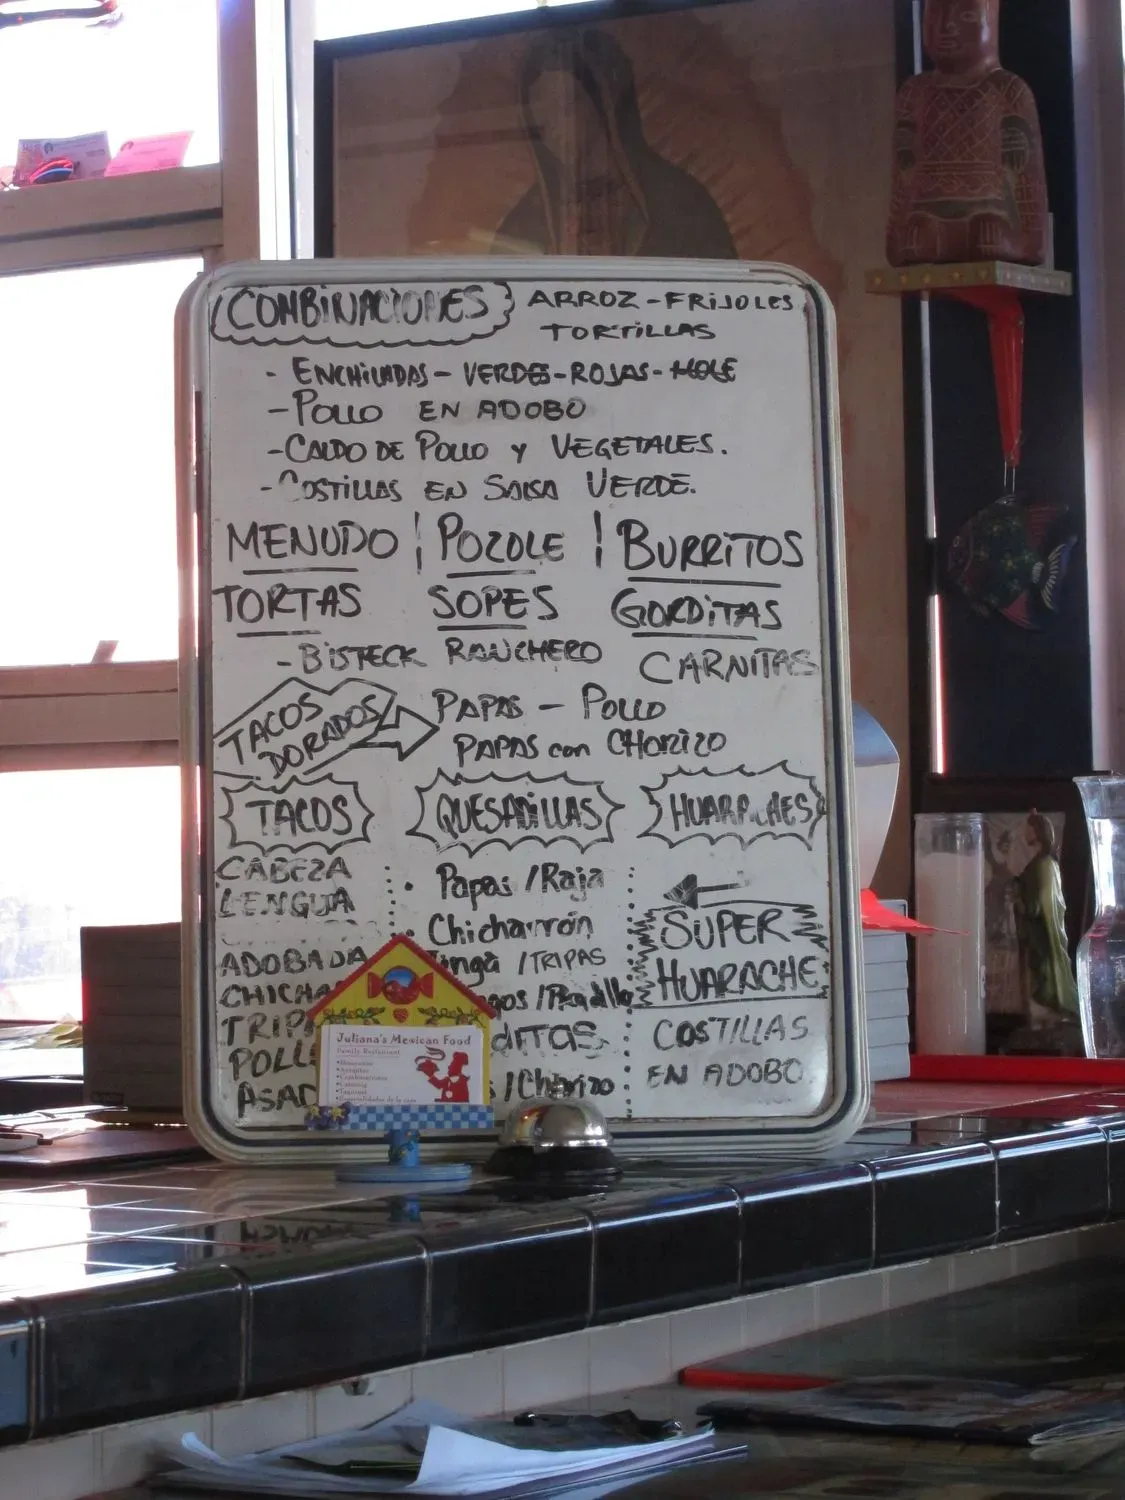 COMBINACIONES ARROZ - FRIJOLES
TORTILLAS
- ENCHILADAS - VERDES - ROJAS - MOLE
- POLLO EN ADOBO
- CALDO DE POLLO Y VEGETALES.
- COSTILLAS EN SALSA VERDE.
MENUDO | POZOLE | BURRITOS
TORTAS SOPES GORDITAS
- BISTECK RANCHERO CARNITAS
TACOS DORADOS PAPAS - POLLO
PAPAS con CHORIZO
TACOS QUESADILLAS HUARACHES
CABEZA
LENGUA
ADOBADA
CHICHA
TRIP
POLL
ASAD
Papas / Raja
Chicharrón
inga / TRIPAS
DITOS
/ Chorizo
SUPER
HUARACHE
COSTILLAS
EN ADOBO
Juliana's Mexican Food
Family Restaurant